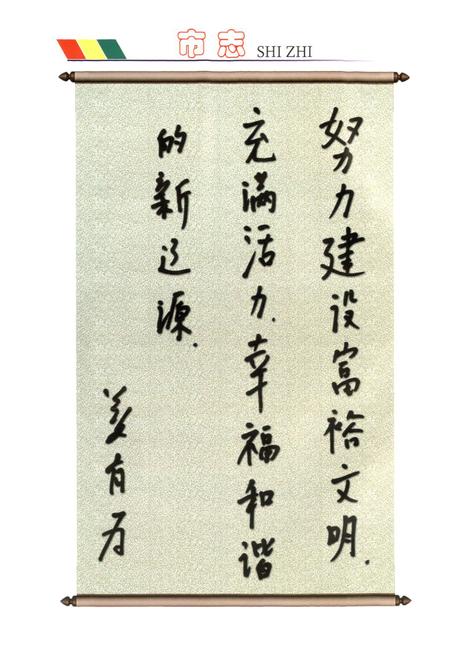 市志 SHI ZHI
努力建设富裕文明.
充满活力.幸福和谐
的新辽源.
姜有为